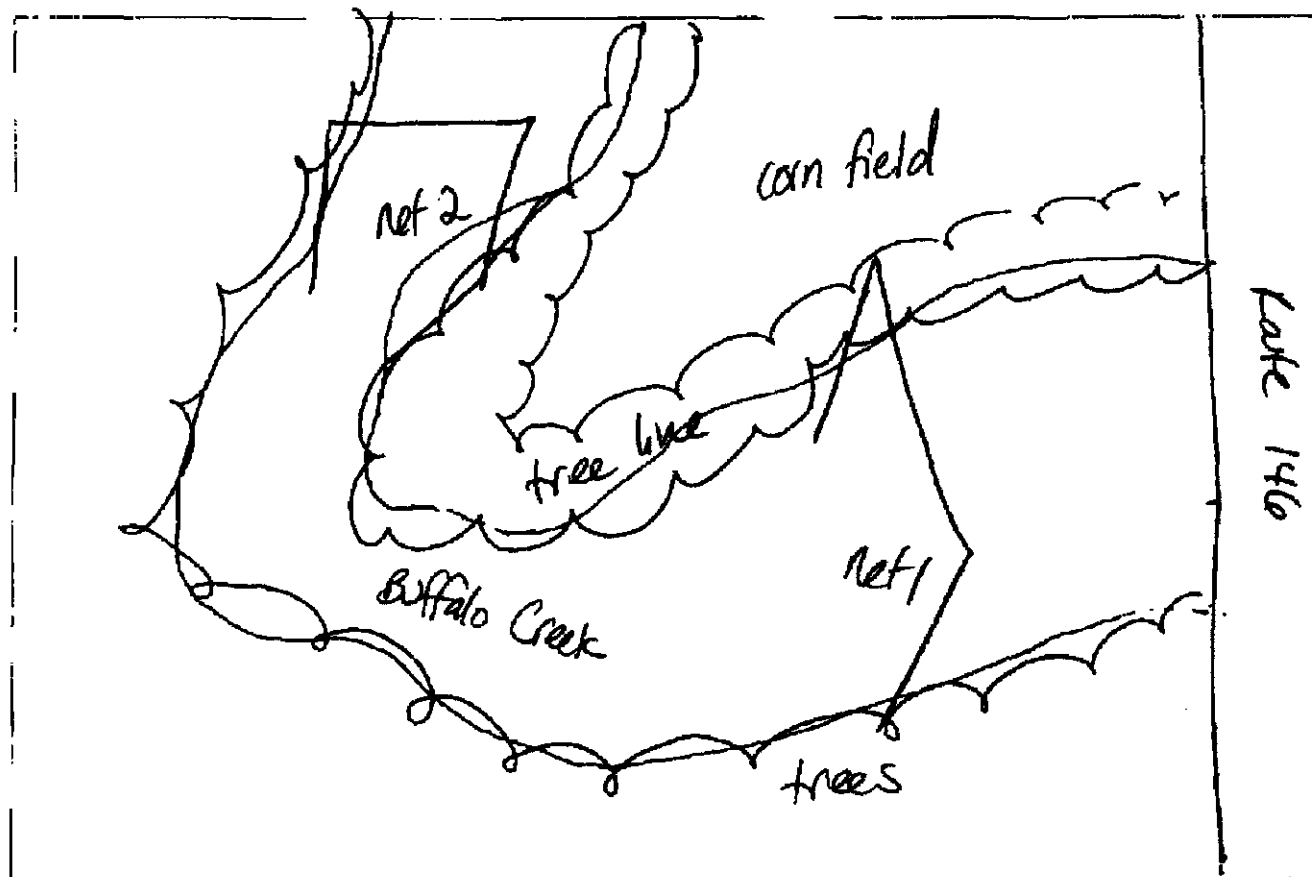 corn field
net 2
tree line
Buffalo Creek
net 1
trees
146